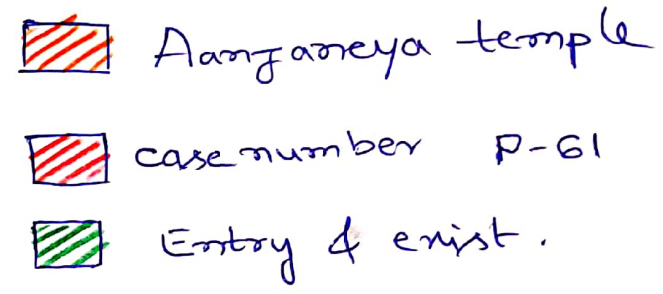 Aanjaneya temple
case number P-61
Entry & exist.